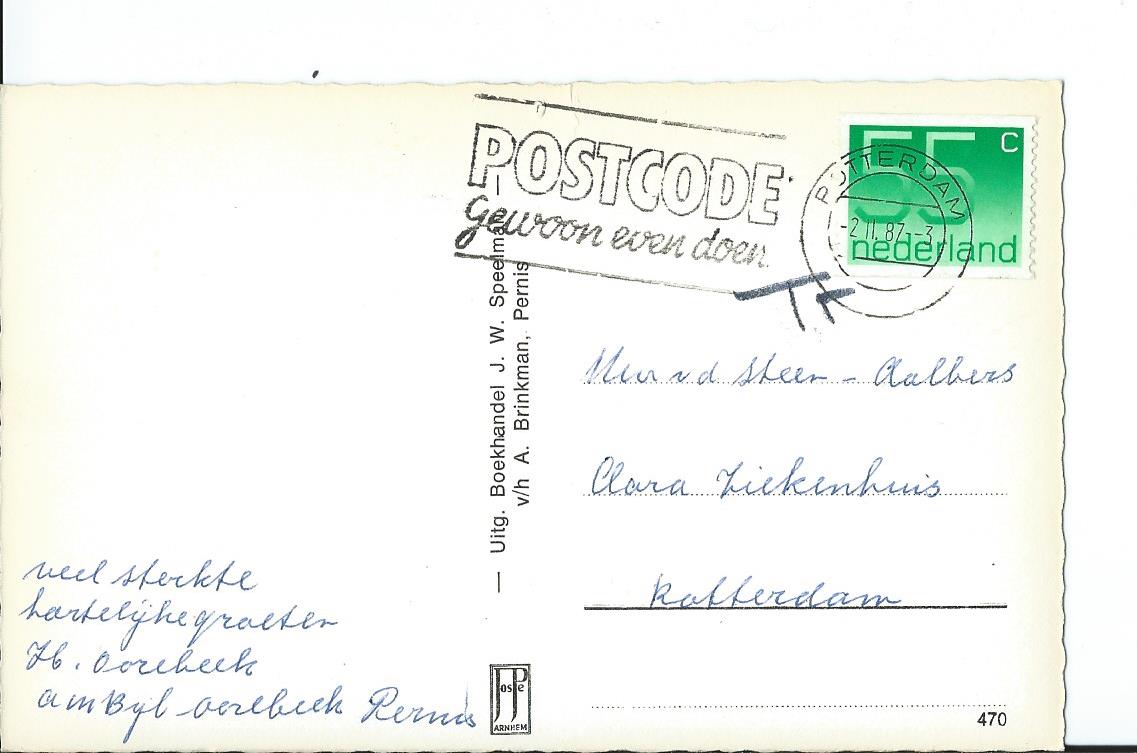 POSTCODE
Gewoon even doen
55 C
nederland
ROTTERDAM
-2 II. 87 -3
— Uitg. Boekhandel J. W. Speelman —
v/h A. Brinkman, Pernis
Mevr v d Steen - Aalbers
Clara Ziekenhuis
Rotterdam
veel sterkte
hartelijke groeten
H. Oorebeek
Oorebeek Pernis
JosPe
ARNHEM
470